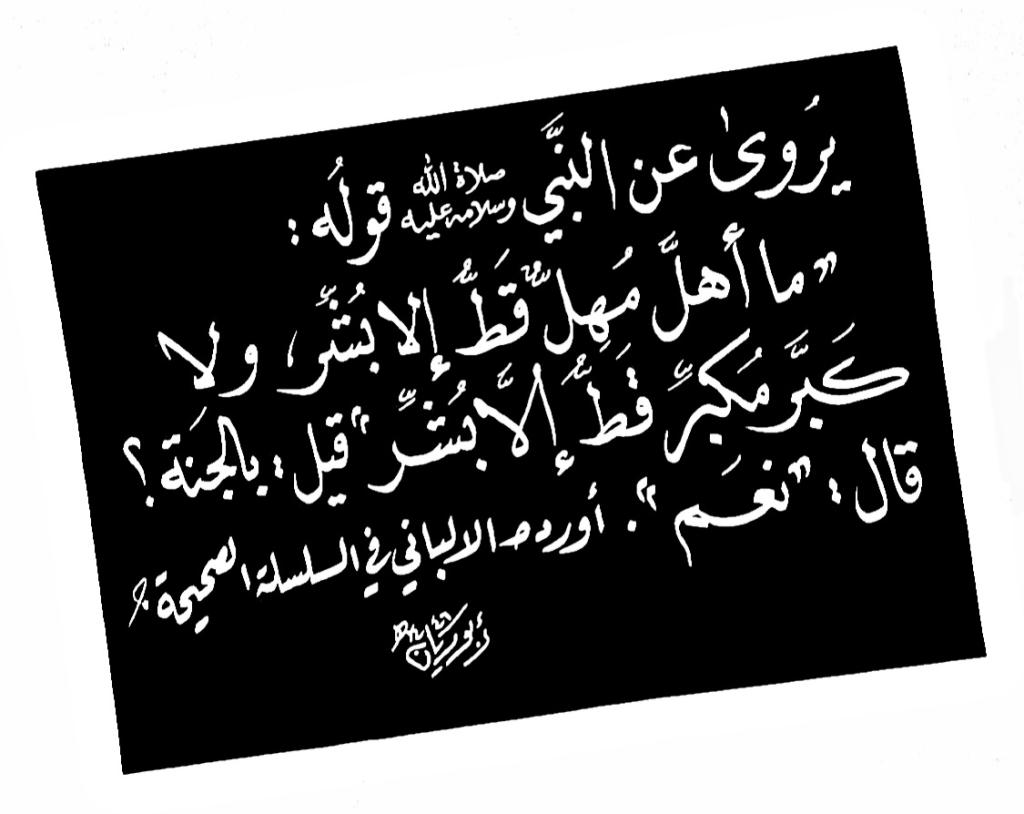 يُروىٰ عن النبَّي صلاة الله وسلامه عليه قولُه :
" ما أهلَّ مُهِلٌّ قَطُّ إلا بُشِّر، ولا
كَبَّر مُكبِّر قَطُّ إلَّا بُشِّر " قيل : بالجنَة ؟
قال : " نعَم " . أورده الالباني في السلسلة الصحيحة
أبو ريان